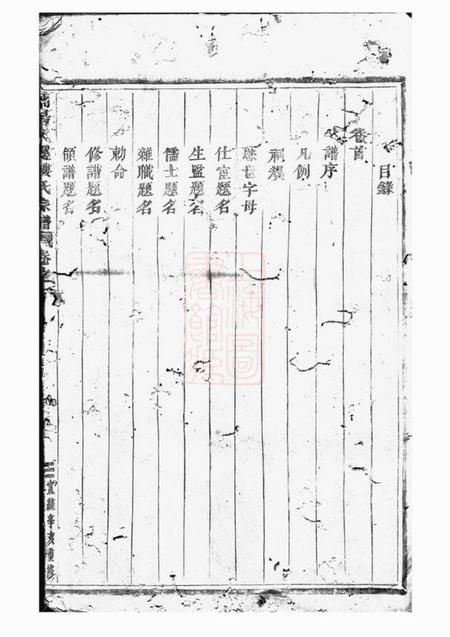 目錄
卷首
譜序
凡例
祠規
應世字母
仕宦題名
生監題名
儒士題名
雜職題名
勅命
修譜題名
領譜題名
婁氏宗譜
宣統辛亥重修